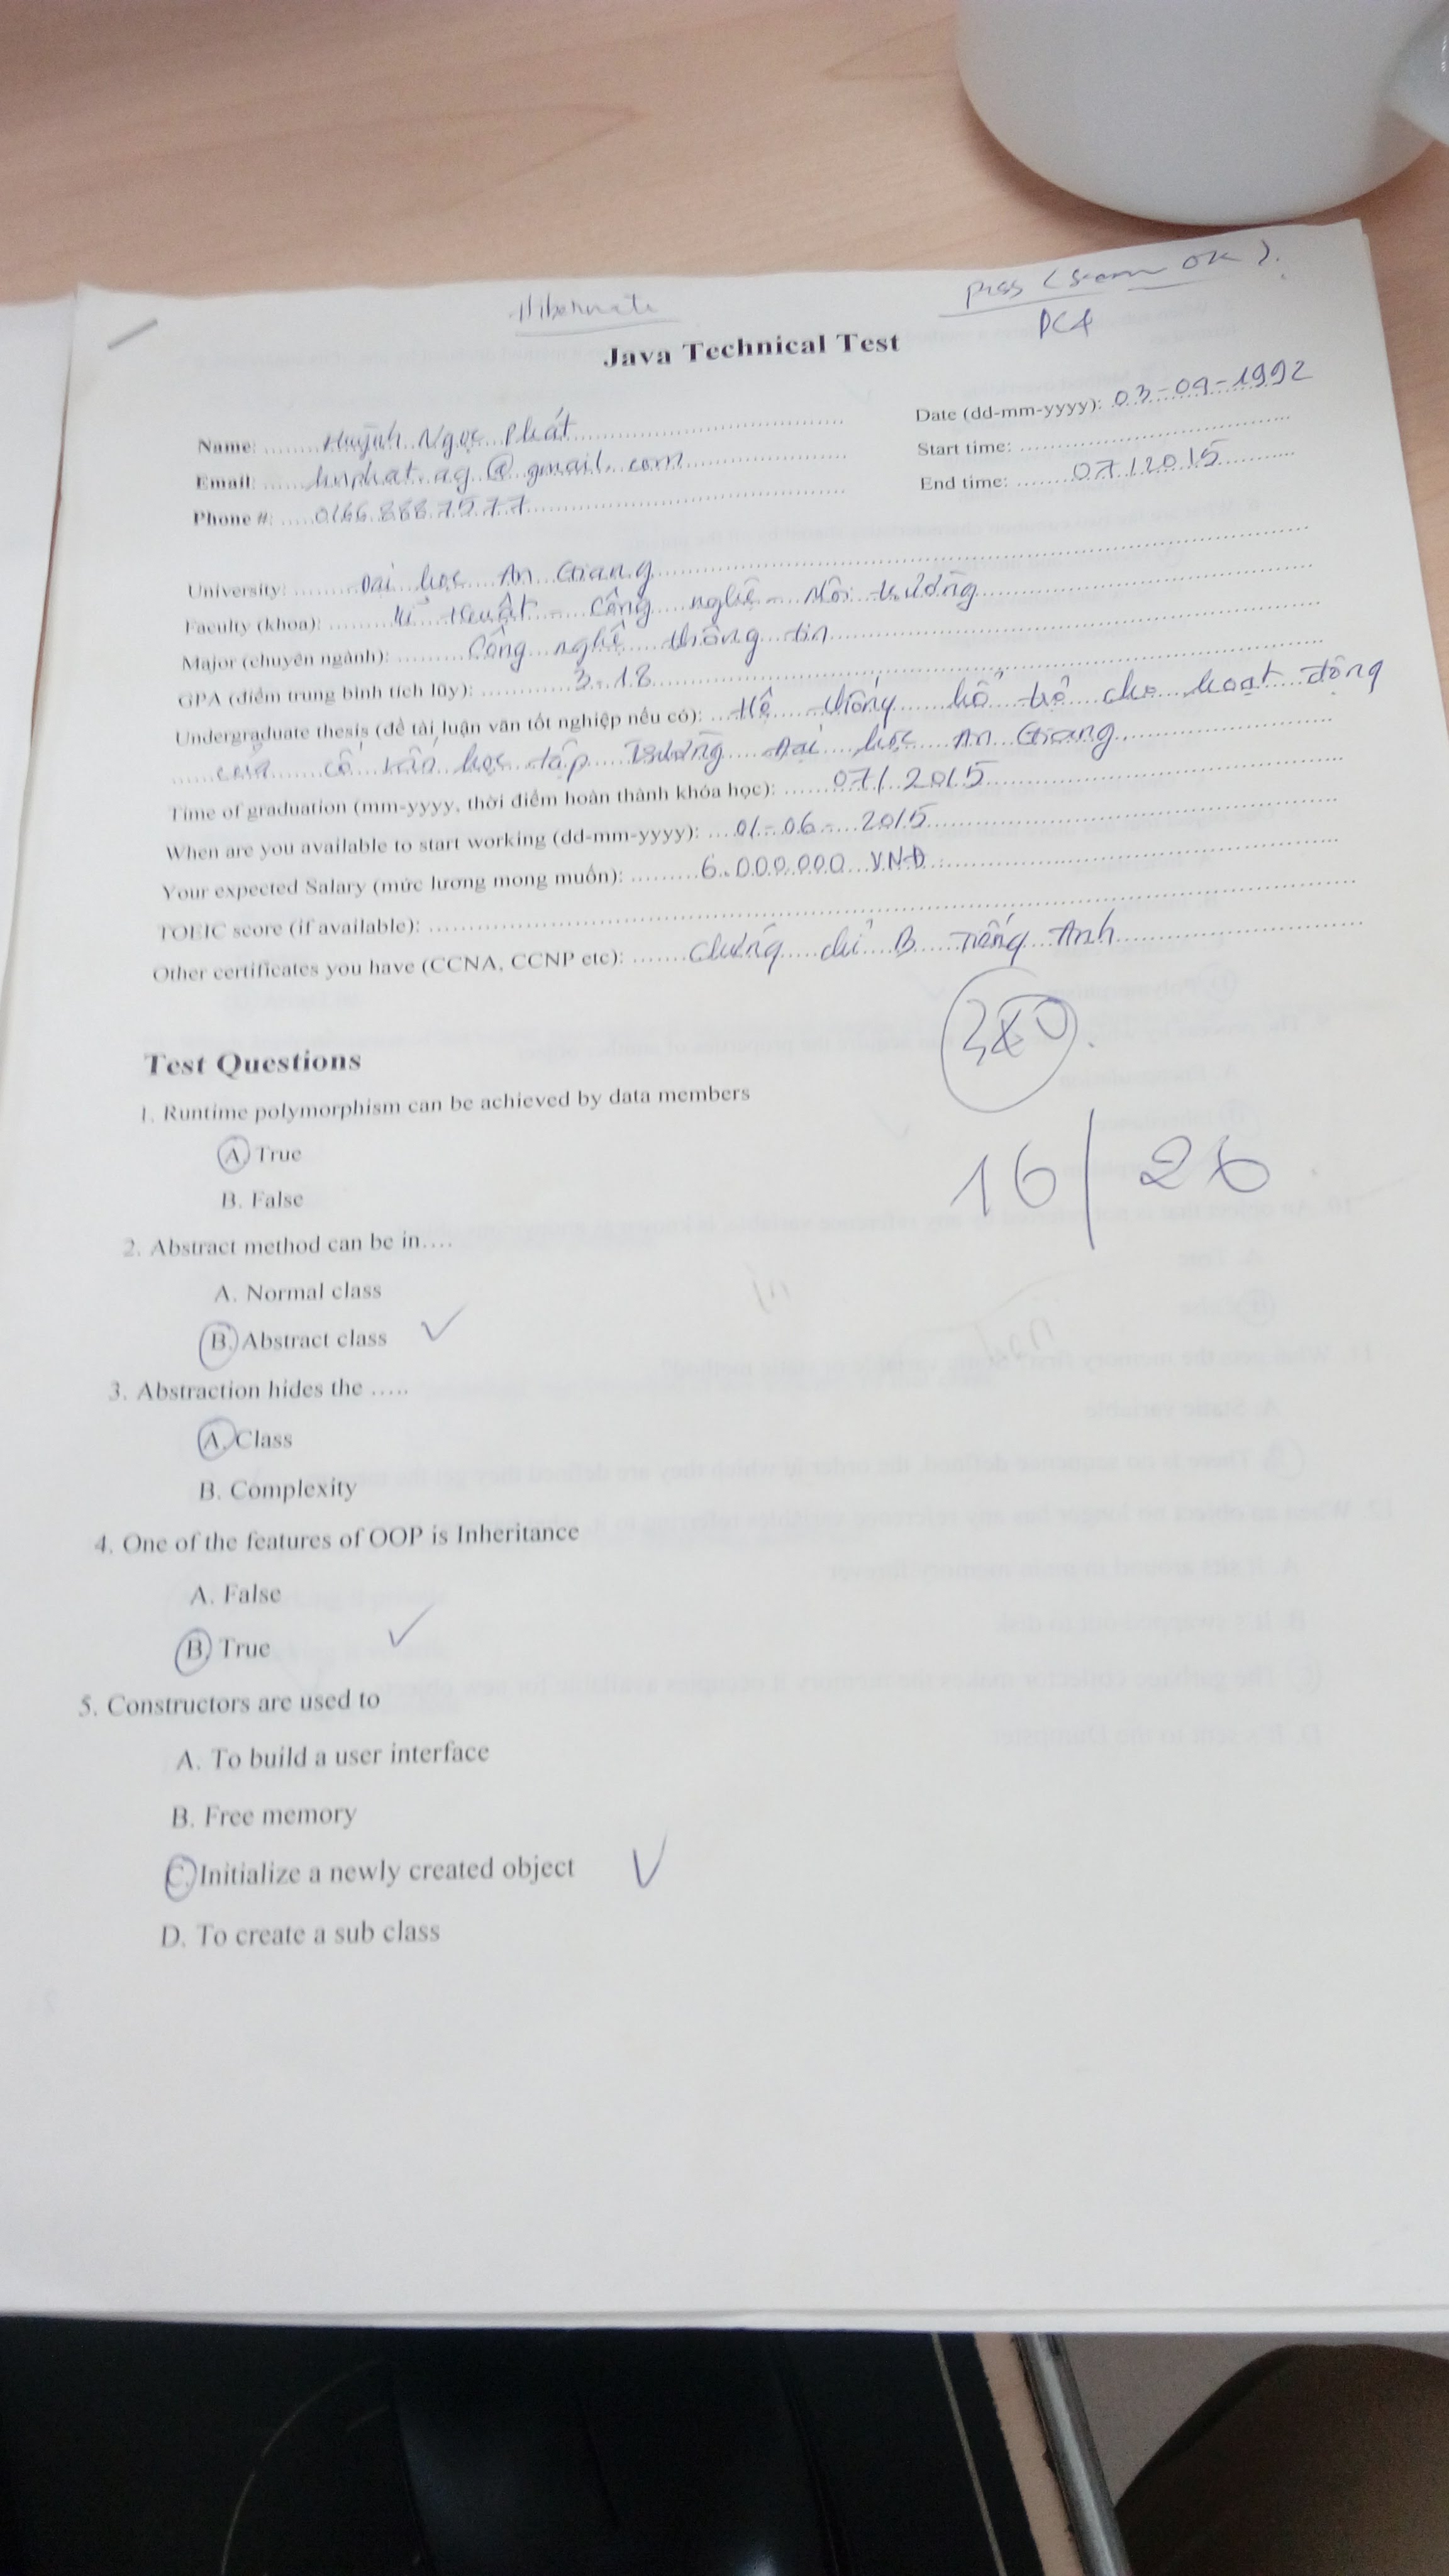 Hibernate
pass ( OK ).
Java Technical Test
Name: Huỳnh Ngọc Phát
Date (dd-mm-yyyy): 03-09-1992
Email: hnphat.ag@gmail.com
Start time:
Phone #: 0166.888.7577
End time: 07/2015
University: Đại học An Giang
Faculty (khoa): Kĩ thuật - Công nghệ - Môi trường
Major (chuyên ngành): Công nghệ thông tin
GPA (điểm trung bình tích lũy): 3.18
Undergraduate thesis (đề tài luận văn tốt nghiệp nếu có): Hệ thống hỗ trợ cho hoạt động
của cố vấn học tập Trường Đại học An Giang
Time of graduation (mm-yyyy, thời điểm hoàn thành khóa học): 07/2015
When are you available to start working (dd-mm-yyyy): 01-06-2015
Your expected Salary (mức lương mong muốn): 6.000.000 VNĐ
TOEIC score (if available):
Other certificates you have (CCNA, CCNP etc): Chứng chỉ B Tiếng Anh
Test Questions
1. Runtime polymorphism can be achieved by data members
A. True
B. False
16 | 26
2. Abstract method can be in....
A. Normal class
B. Abstract class
3. Abstraction hides the .....
A. Class
B. Complexity
4. One of the features of OOP is Inheritance
A. False
B. True
5. Constructors are used to
A. To build a user interface
B. Free memory
C. Initialize a newly created object
D. To create a sub class